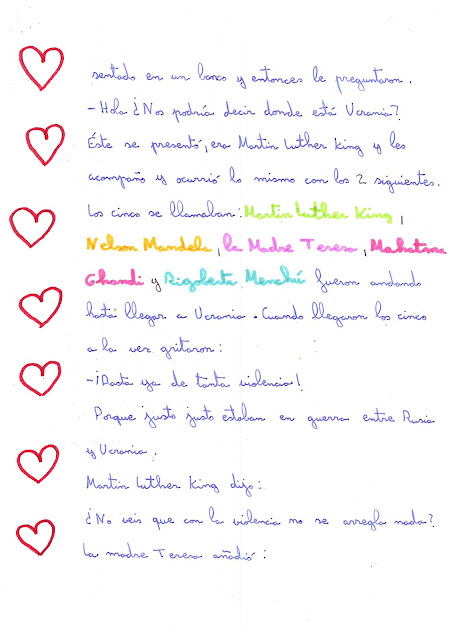 sentado en un banco y entonces le preguntaron.
- Hola ¿Nos podría decir donde está Ucrania?
Éste se presentó, era Martin Luther King y les
acompaño y ocurrió lo mismo con los 2 siguientes.
Los cinco se llamaban: Martin Luther King,
Nelson Mandela, la Madre Teresa, Mahatma
Ghandi y Rigoberta Menchú fueron andando
hasta llegar a Ucrania. Cuando llegaron los cinco
a la vez gritaron:
- ¡Basta ya de tanta violencia!
Porque justo justo estaban en guerra entre Rusia
y Ucrania.
Martin Luther King dijo:
¿No veis que con la violencia no se arregla nada?
La madre Teresa añadió: